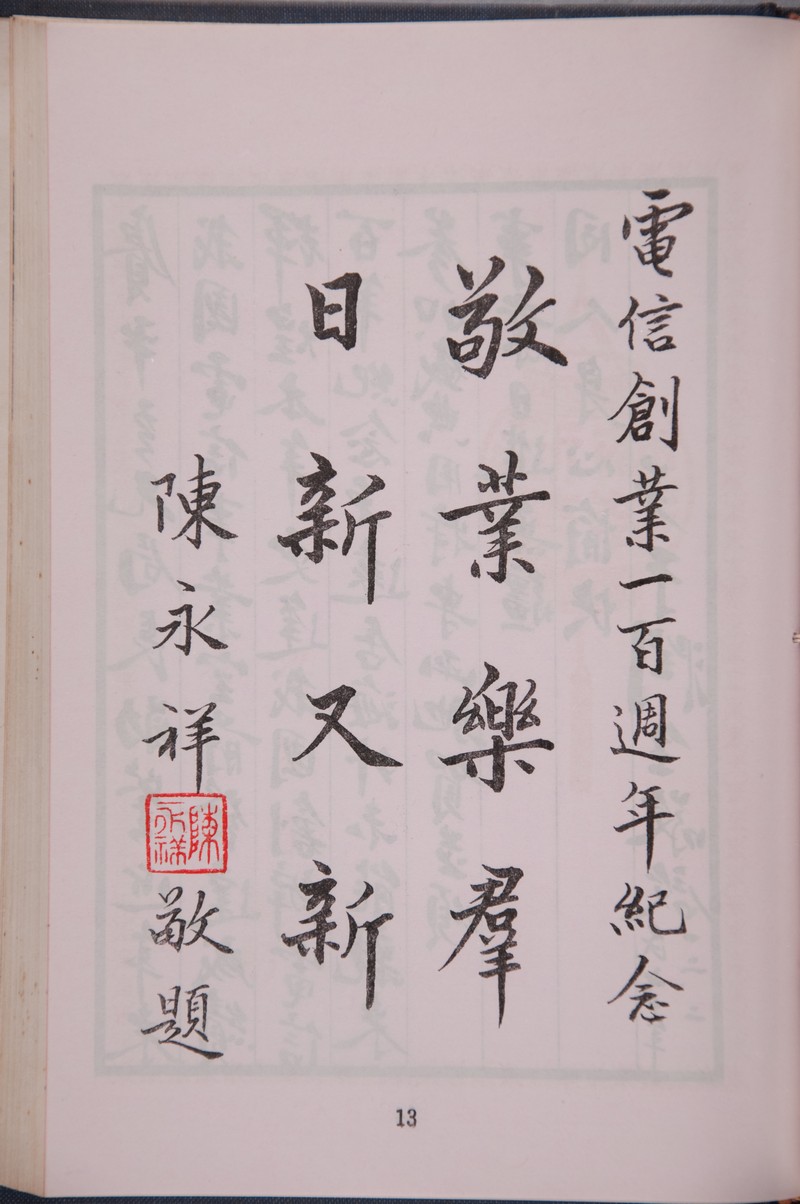 電信創業一百週年紀念
敬業樂羣
日新又新
陳永祥敬題
陳永祥
13